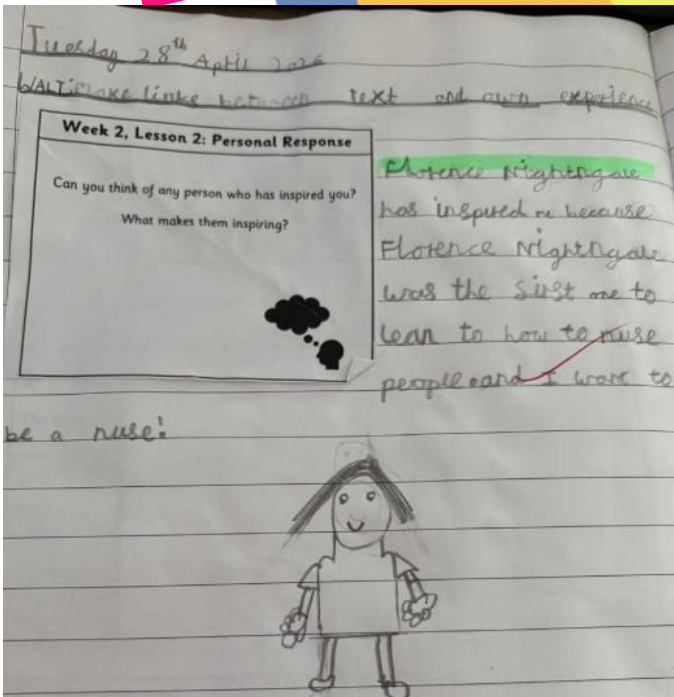 Tuesday 28th April 2026
WALT: make links between text and own experience
Week 2, Lesson 2: Personal Response
Can you think of any person who has inspired you?
What makes them inspiring?
Florence Nightingale
has inspired me because
Florence Nightingale
was the first one to
lean to how to nuse
people and I want to
be a nuse!